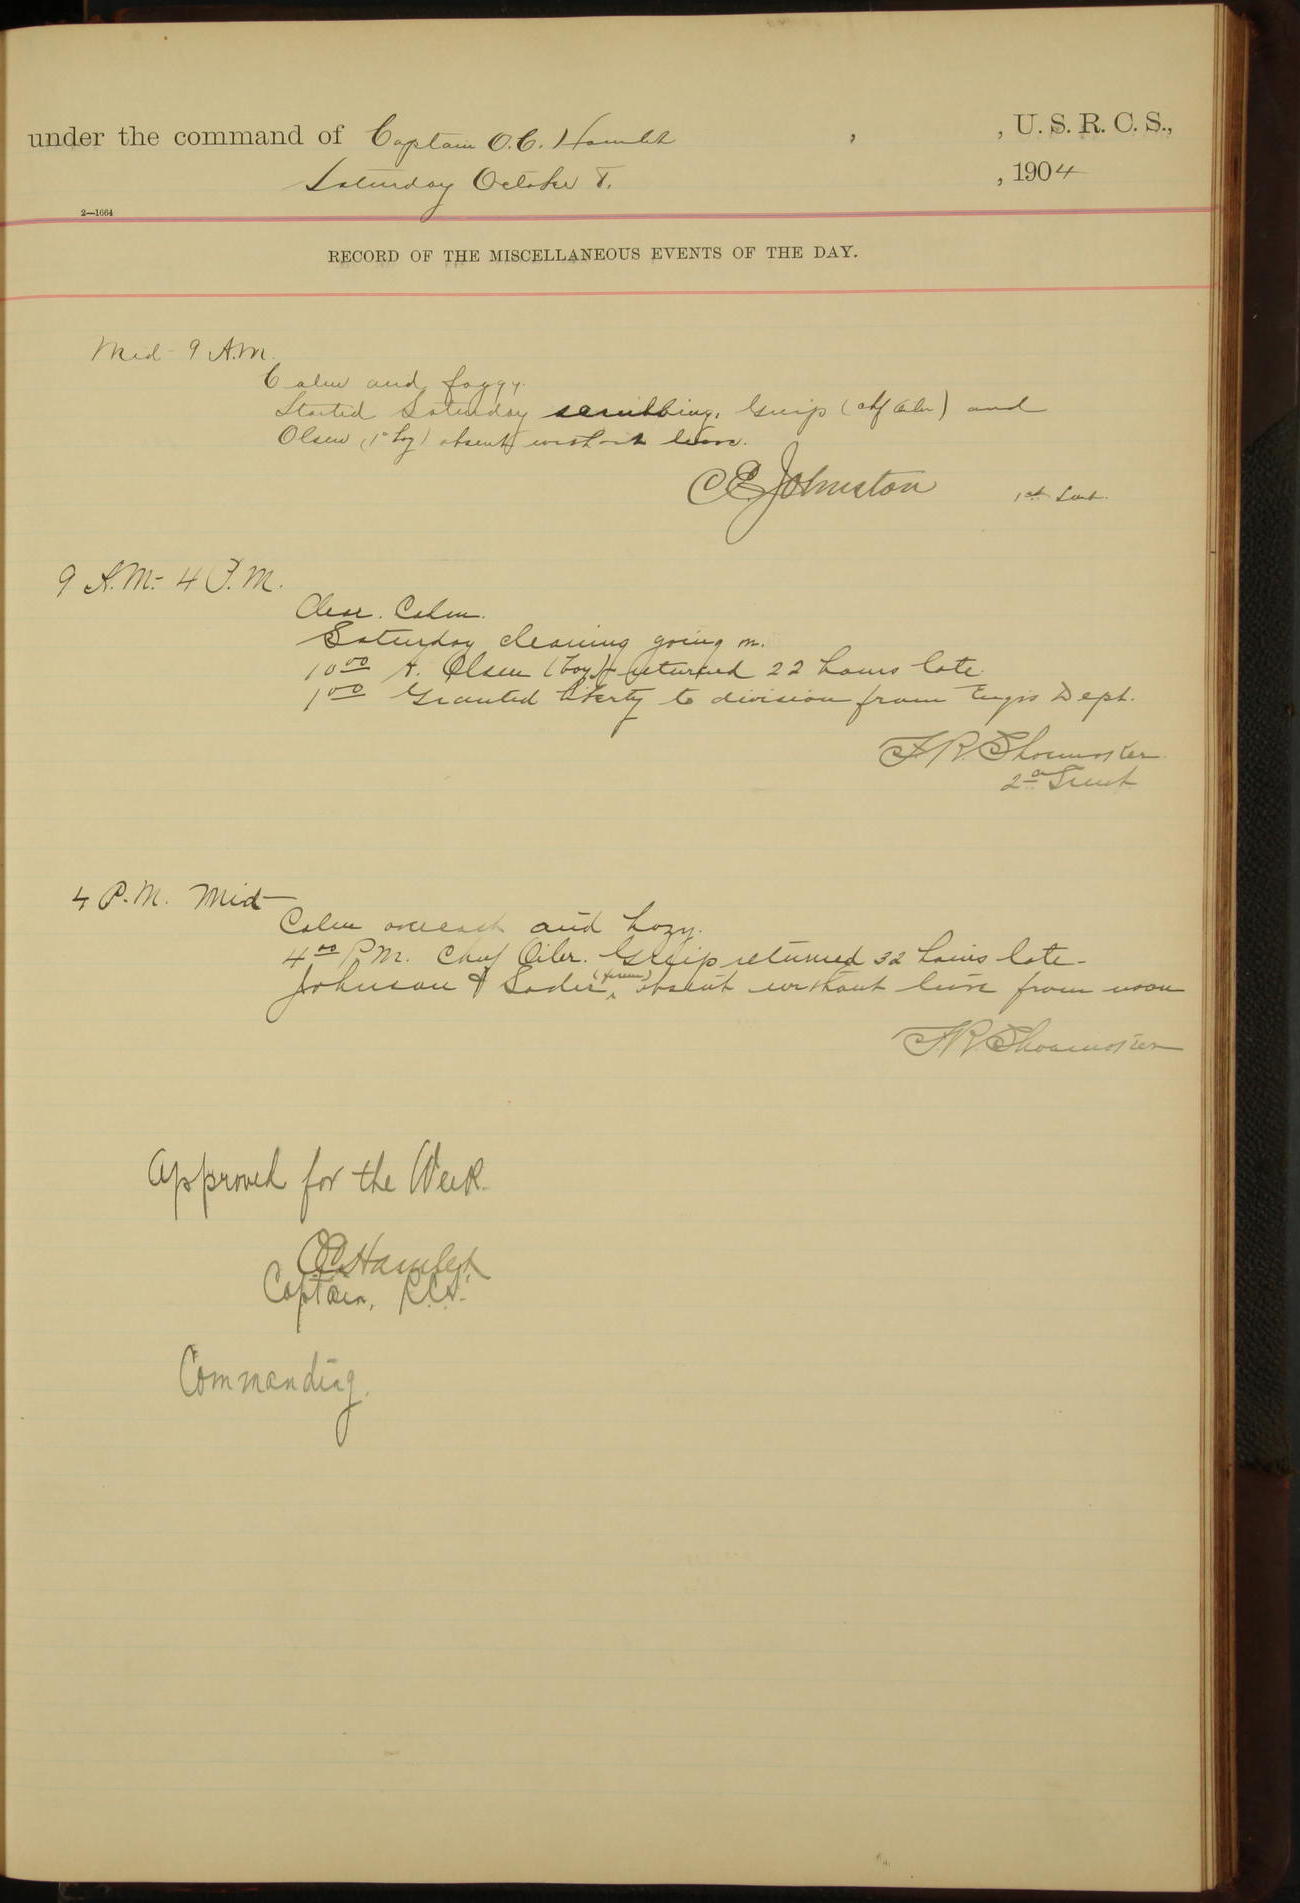 under the command of Captain O. C. Hamlet , , U. S. R. C. S.,
Saturday October 8. , 1904
2—1664
RECORD OF THE MISCELLANEOUS EVENTS OF THE DAY.
Mid - 9 A.M.
Calm and foggy.
Started Saturday scrubbing. (chf Oiler) and
Olsen (1c boy) absent without leave.
C E. Johnston 1st Lieut.
9 A.M. - 4 P.M.
Clear. Calm.
Saturday cleaning going on.
10 00 A. Olsen (boy) returned 22 hours late.
1 00 Granted liberty to division from Engrs Dept.
F R. Shoemaker
2d Lieut
4 P.M. Mid
Calm overcast and hazy.
4 00 P.M. Chief Oiler. returned 32 hours late -
Johnson & absent without leave from noon
F R. Shoemaker
Approved for the Week.
O C Hamlet
Captain, R.C.S.
Commanding.